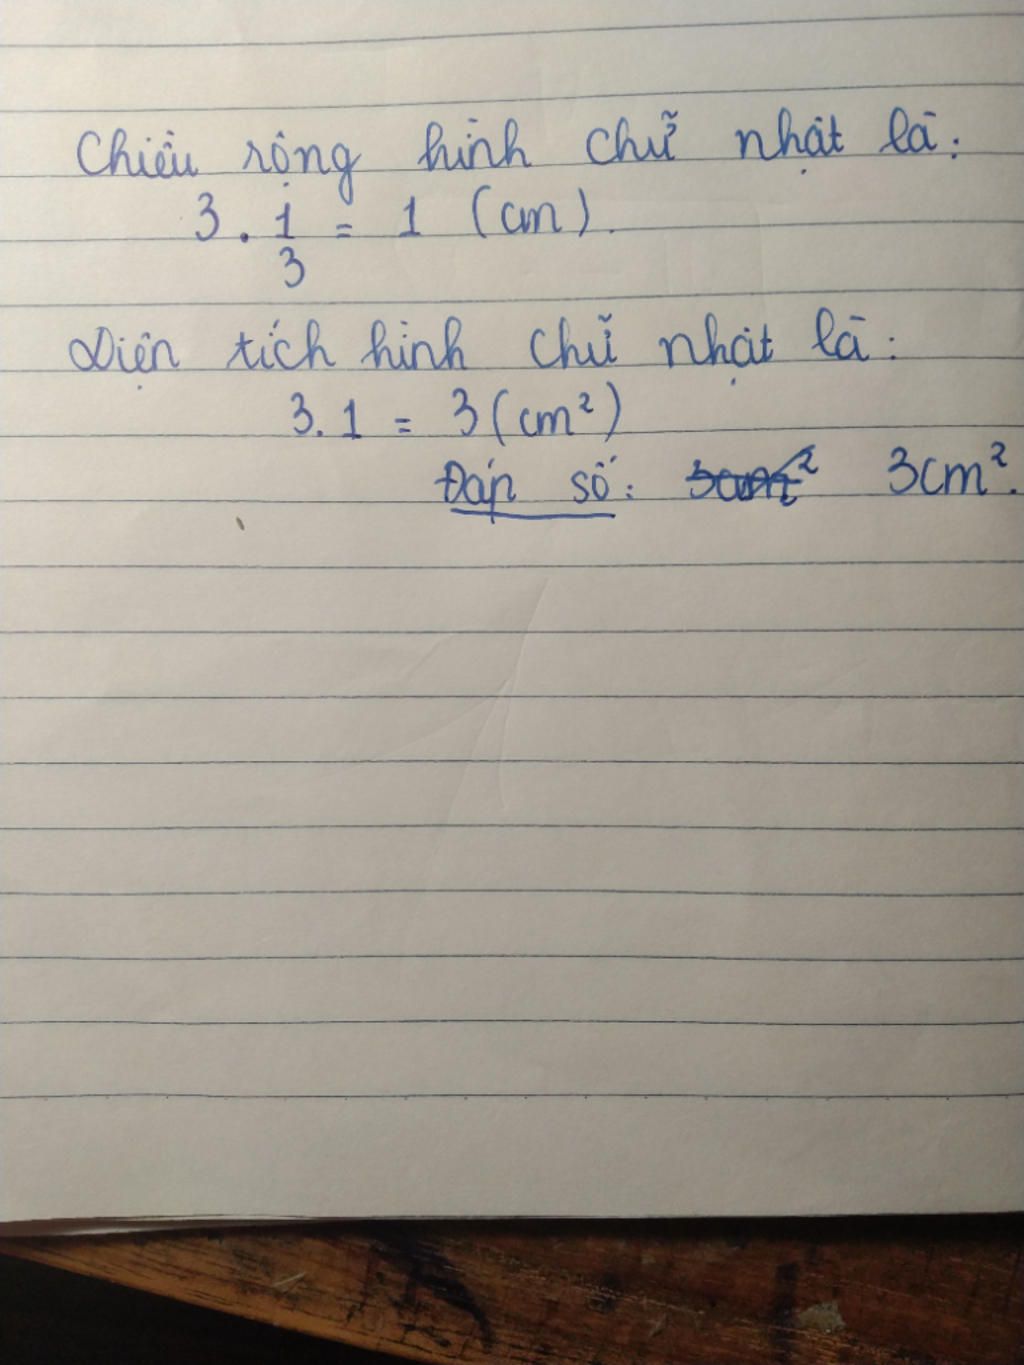 Chiều rộng hình chữ nhật là:
3 . 1/3 = 1 (cm).
Diện tích hình chữ nhật là:
3.1 = 3 (cm²)
Đáp số: 3cm² 3cm².